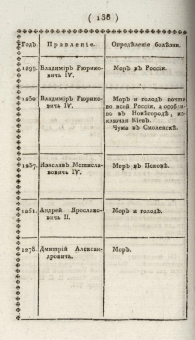 ( 138 )
Годъ. Правленіе. Опредѣленіе болѣзни.
Владимѣръ Рюрико-
вичь IV.
Моръ въ Россіи.
Владимѣръ Рюрико-
вичь IV.
Моръ и голодъ почти
во всей Россіи, а особли-
во въ Новѣгородѣ, ис-
ключая Кіевъ.
Чума въ Смоленскѣ.
Ярославъ Мстисла-
вовичь IV.
Моръ въ Псковѣ.
Андрей Ярославо-
вичь II.
Моръ и голодъ.
1278. Дмитрій Александ-
ровичь.
Моръ.